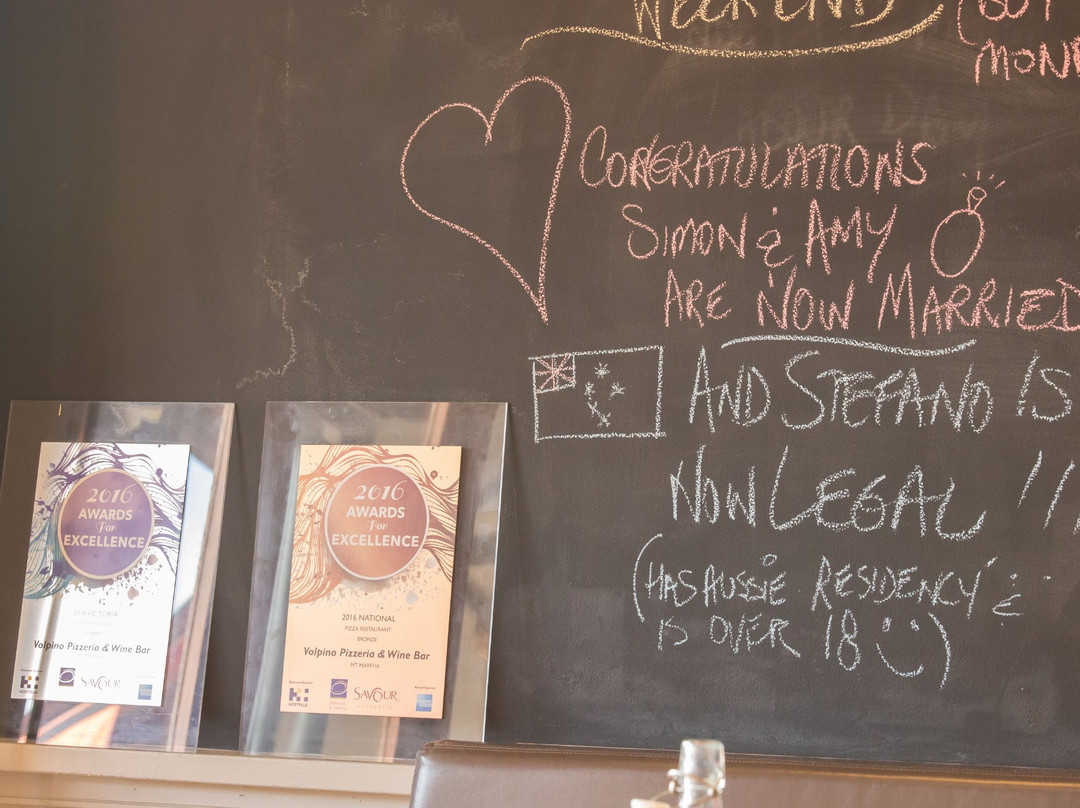 WEEKEND
MOND
CONGRATULATIONS
SIMON & AMY
ARE NOW MARRIED
AND STEFANO IS
NOW LEGAL !!
(HAS AUSSIE RESIDENCY &
IS OVER 18 )
2016
AWARDS
For
EXCELLENCE
2016 VICTORIA
Volpino Pizzeria & Wine Bar
HOSTPLUS
SAVOUR
2016
AWARDS
For
EXCELLENCE
2016 NATIONAL
PIZZA RESTAURANT
BRONZE
Volpino Pizzeria & Wine Bar
MT MARTHA
HOSTPLUS
SAVOUR
AUSTRALIA